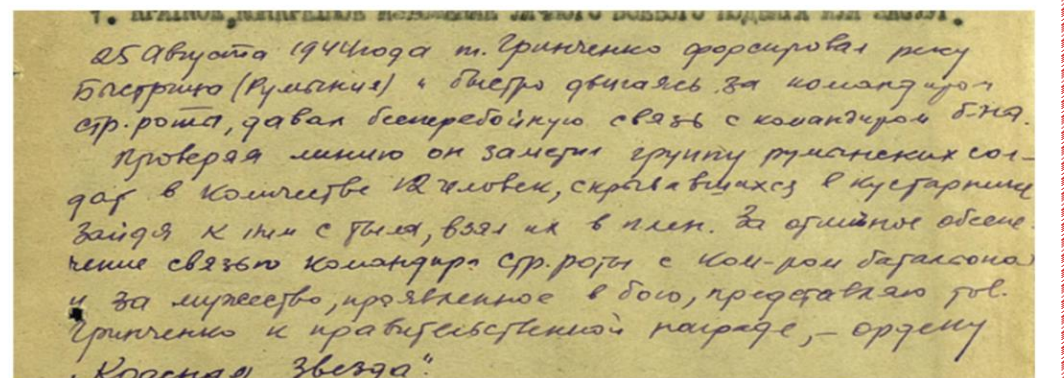 7. КРАТКОЕ, КОНКРЕТНОЕ ИЗЛОЖЕНИЕ ЛИЧНОГО БОЕВОГО ПОДВИГА ИЛИ ЗАСЛУГ.
25 Августа 1944 года т. Гринченко форсировал реку
Быстрица (Румыния) и быстро двигаясь за командиром
стр. рота, давал бесперебойную связь с командиром б-на.
Проверяя линию он заметил группу румынских сол-
дат в количестве 12 человек, скрывавшихся в кустарнике
Зайдя к ним с тыла, взял их в плен. За отличное обеспе-
чение связью командира стр. роты с ком-ром баталиона
и за мужество, проявленное в бою, представляю тов.
Гринченко к правительственной награде, – ордену
„Красная Звезда".